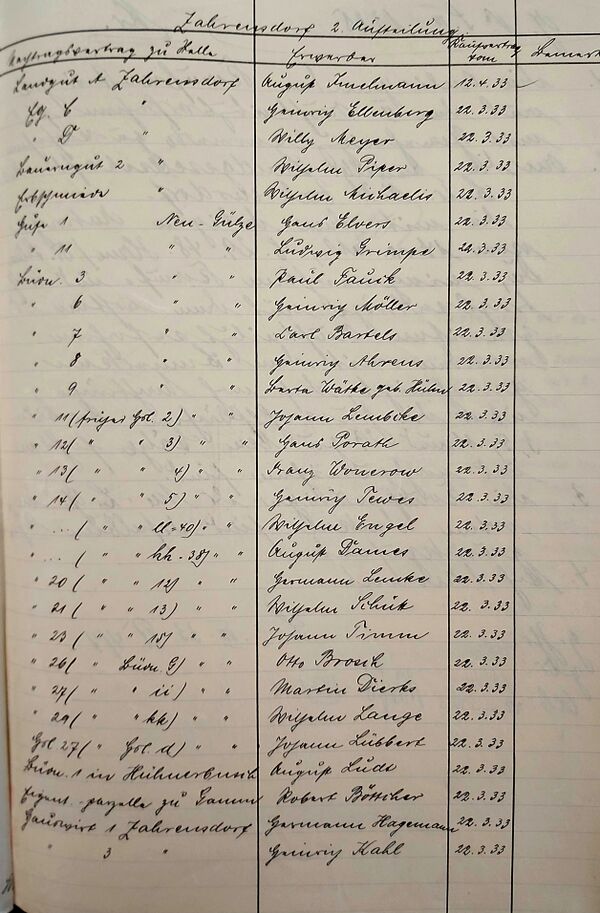 Zahrensdorf 2. Aufteilung
zu Stelle Erwerber Kaufvertrag vom Bemerk
Landgut A Zahrensdorf August Imelmann 12.4.33
Eg. C " Heinrich Ellenberg 22.3.33
" D " Willy Meyer 22.3.33
Bauerngut 2 " Wilhelm Piper 22.3.33
Erbschmiede " Wilhelm Michaelis 22.3.33
Hufe 1 Neu-Gülze Hans Elvers 22.3.33
" 11 " " Ludwig Grimpe 22.3.33
Büdn. 3 " " Paul Fauck 22.3.33
" 6 " " Heinrich Möller 22.3.33
" 7 " " Carl Bartels 22.3.33
" 8 " " Heinrich Ahrens 22.3.33
" 9 " " Berta Wätke geb. Hühn 22.3.33
" 11 (früher Häl. 2) " " Johann Lembcke 22.3.33
" 12 ( " " 3) " " Hans Porath 22.3.33
" 13 ( " " 4) " " Franz Wonerow 22.3.33
" 14 ( " " 5) " " Heinrich Tewes 22.3.33
" ... ( " " ll=40) " " Wilhelm Engel 22.3.33
" ... ( " " hh=38) " " August Dames 22.3.33
" 20 ( " " 12) " " Hermann Lemke 22.3.33
" 21 ( " " 13) " " Wilhelm Schük 22.3.33
" 23 ( " " 15) " " Johann Timm 22.3.33
" 26 ( " Büdn. G) " " Otto Brosch 22.3.33
" 27 ( " " ii) " " Martin Dierks 22.3.33
" 29 ( " " kk) " " Wilhelm Lange 22.3.33
Häl. 27 ( " Häl. d) " " Johann Lübbert 22.3.33
Büdn. 1 in Hühnerbusch August Ludt 22.3.33
Eigent.-parzelle zu Gamm Robert Böttcher 22.3.33
Hauswirt 1 Zahrensdorf Hermann Hagemann 22.3.33
" 3 " Heinrich Kahl 22.3.33